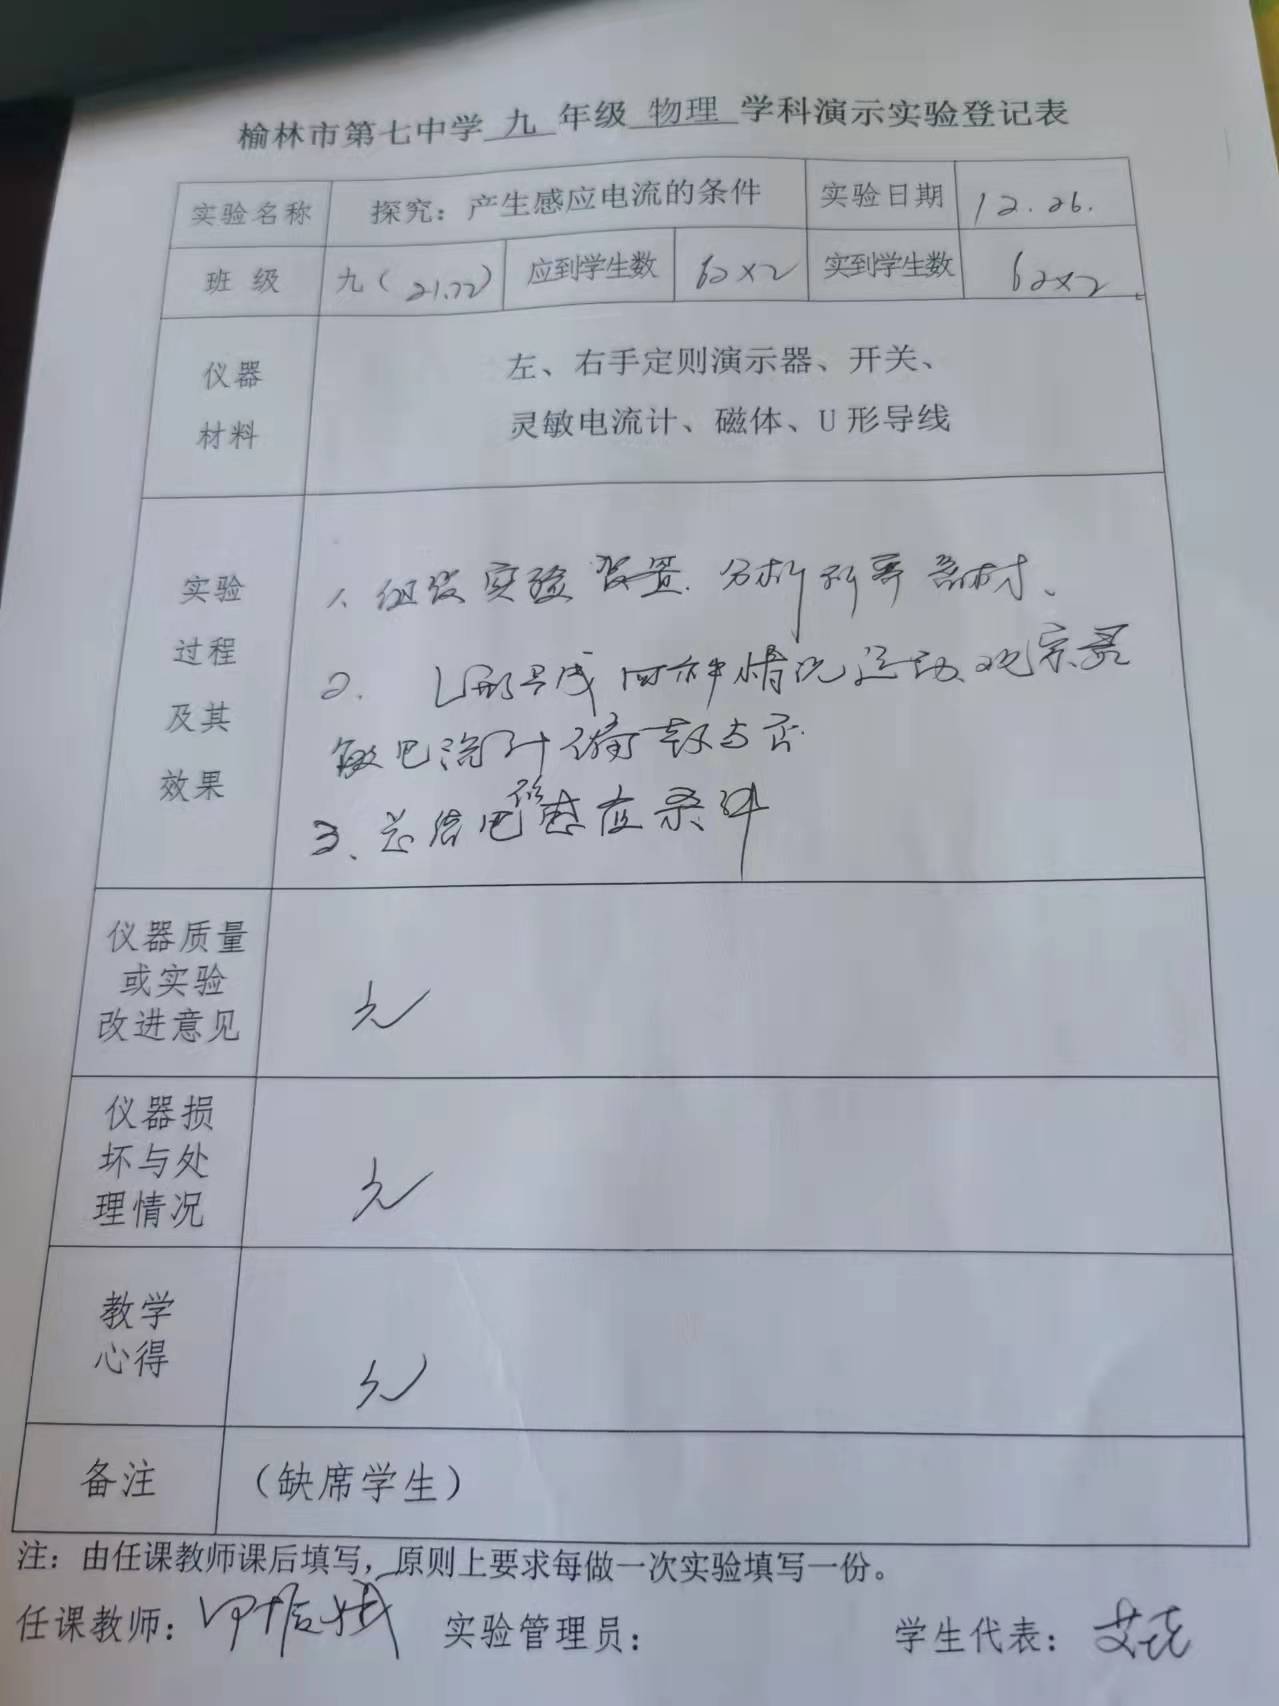 榆林市第七中学 九 年级 物理 学科演示实验登记表
实验名称 探究：产生感应电流的条件 实验日期 12.26.
班 级 九（21.22） 应到学生数 62×2 实到学生数 62×2
仪器
材料
左、右手定则演示器、开关、
灵敏电流计、磁体、U 形导线
实验
过程
及其
效果
1. 组装实验装置. 分析所需器材.
2. U形导线四种情况运动,观察灵
敏电流计偏转与否
3、总结电磁感应条件
仪器质量
或实验
改进意见
无
仪器损
坏与处
理情况
无
教学
心得
无
备注 （缺席学生）
注：由任课教师课后填写，原则上要求每做一次实验填写一份。
任课教师： 实验管理员： 学生代表：